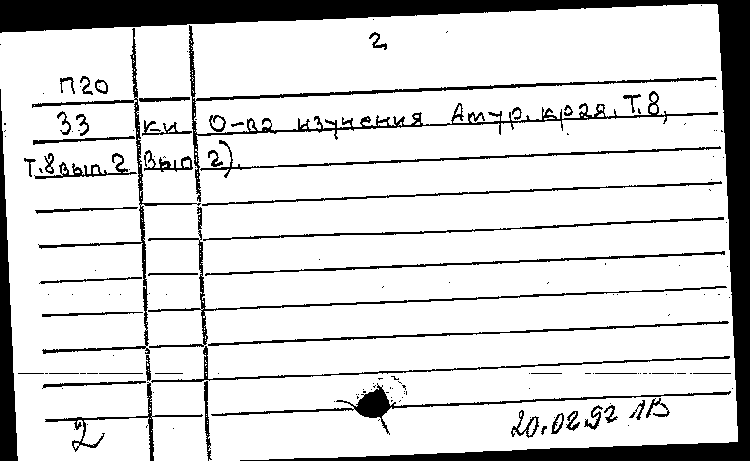 2
П20
33 ки О-ва изучения Амур. края. Т.8,
Т.8вып.2 вып 2).
2 20.02.92 ЛВ